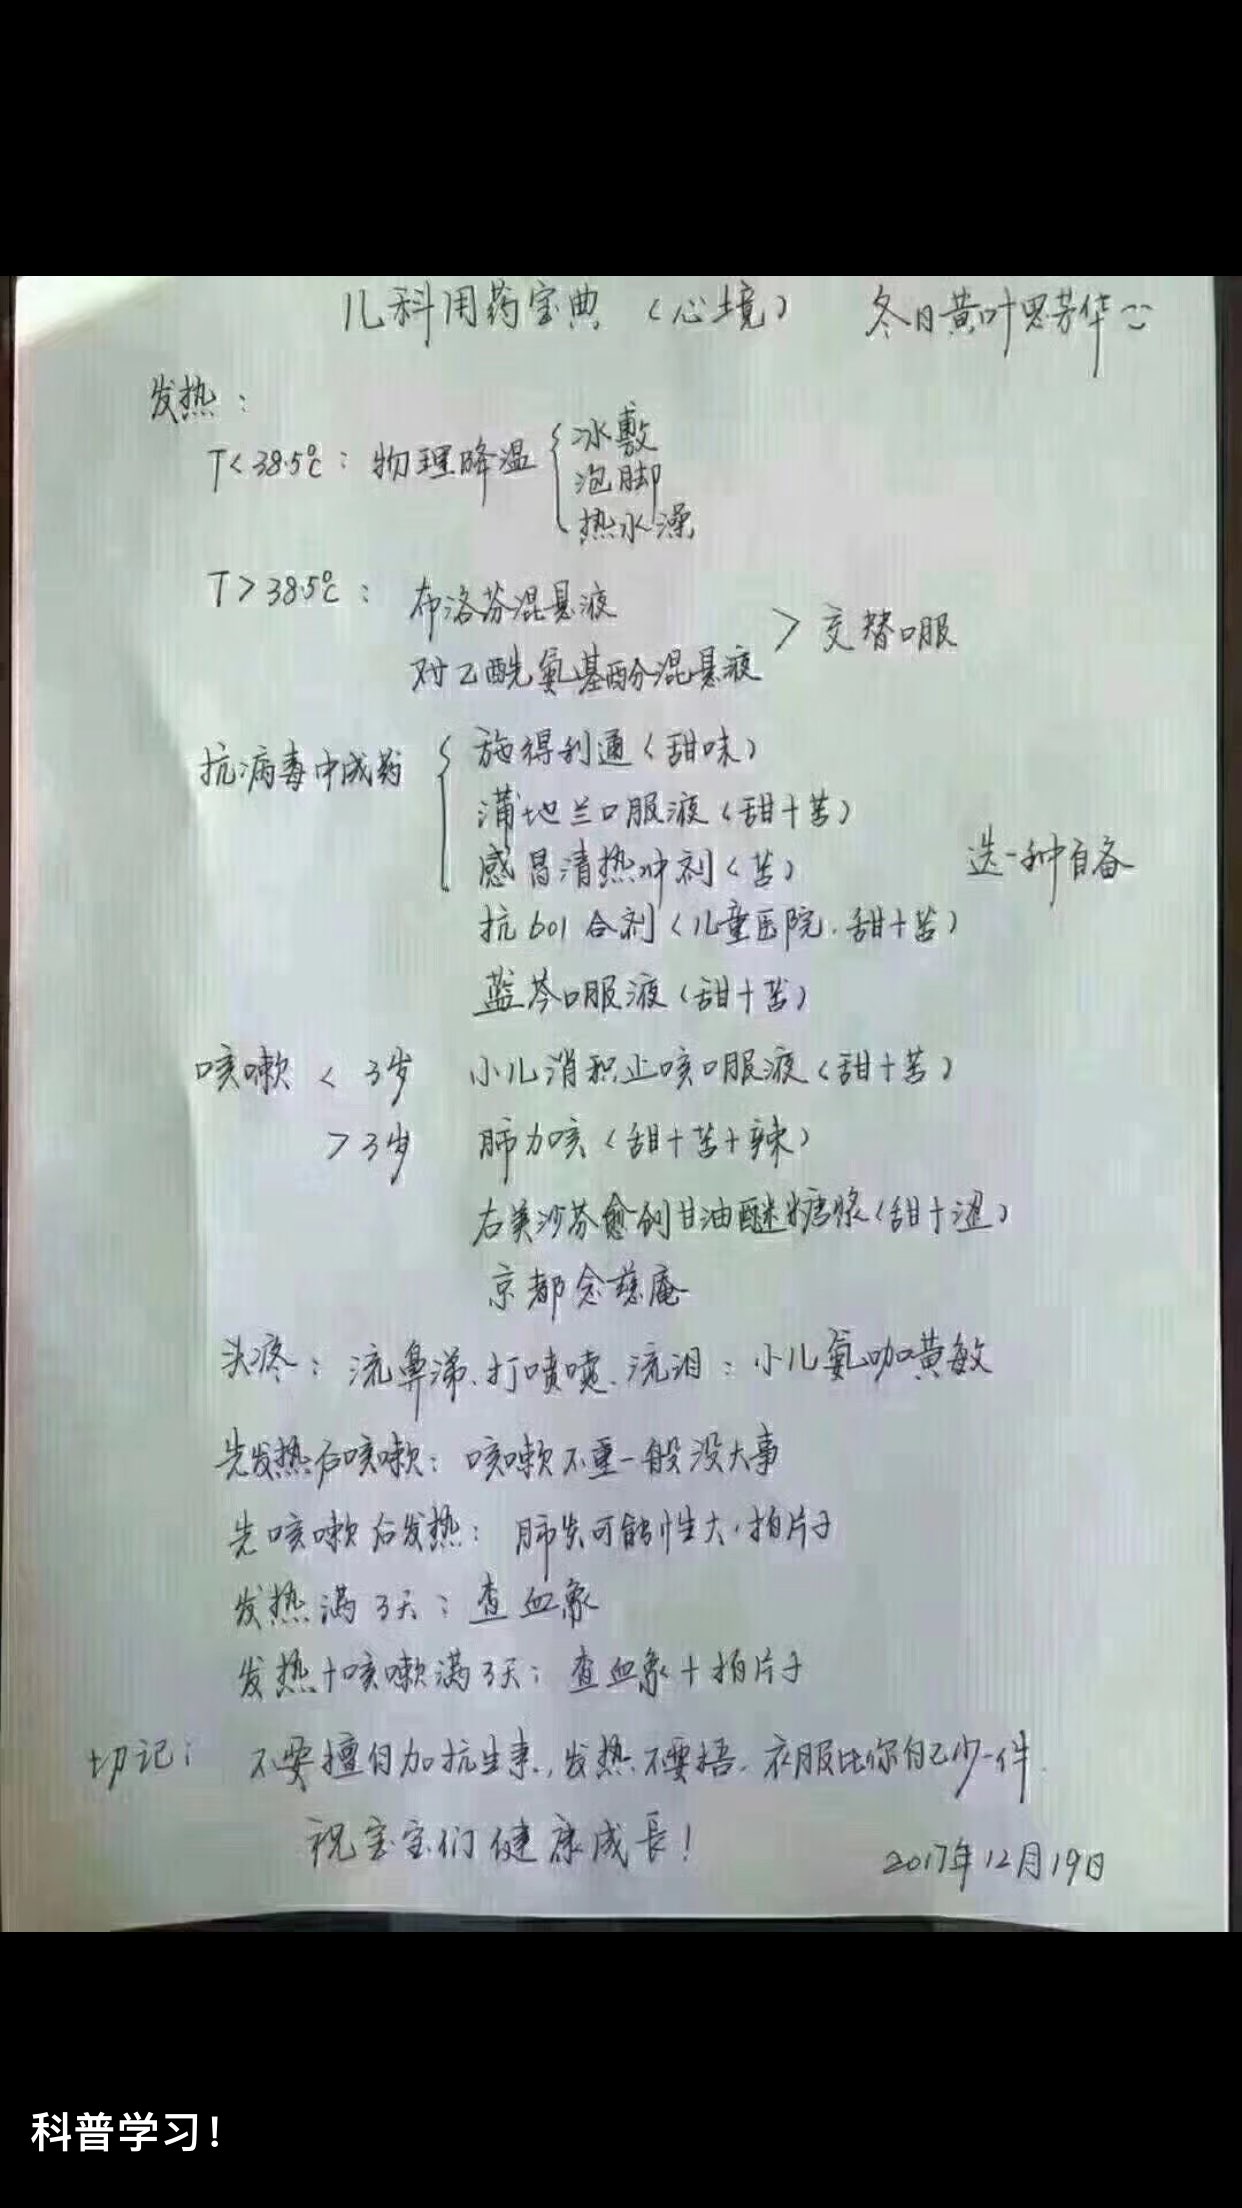 儿科用药宝典（心境） 冬日黄叶思芳华
发热：
T<38.5℃：物理降温
冰敷
泡脚
热水澡
T>38.5℃：
布洛芬混悬液
对乙酰氨基酚混悬液
> 交替口服
抗病毒中成药
施得利通（甜味）
蒲地兰口服液（甜+苦）
感冒清热冲剂（苦）
选一种自备
抗601合剂（儿童医院.甜+苦）
蓝芩口服液（甜+苦）
咳嗽 < 3岁 小儿消积止咳口服液（甜+苦）
> 3岁 肺力咳（甜+苦+辣）
右美沙芬愈创甘油醚糖浆（甜+涩）
京都念慈庵
头疼：流鼻涕、打喷嚏、流泪：小儿氨咖黄敏
先发热后咳嗽：咳嗽不重一般没大事
先咳嗽后发热：肺炎可能性大，拍片子
发热满3天：查血象
发热+咳嗽满3天：查血象+拍片子
切记：不要擅自加抗生素，发热不要捂.衣服比你自己少一件.
祝宝宝们健康成长！
2017年12月19日
科普学习！